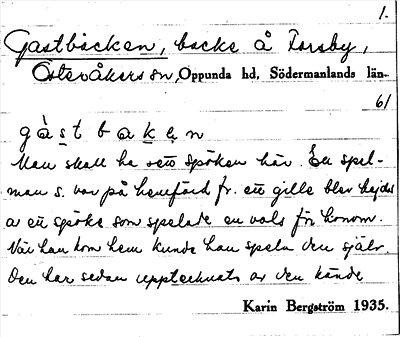 1.
Gastbacken, backe å Forsby,
Österåkers sn, Oppunda hd, Södermanlands län.
61
g a s t b a k e n
Man skall ha sett spöken här. En spel-
man s. var på hemfärd fr. ett gille blev hejdad
av ett spöke som spelade en vals för honom.
När han kom hem kunde han spela den själv.
Den har sedan upptecknats av den kände
Karin Bergström 1935.